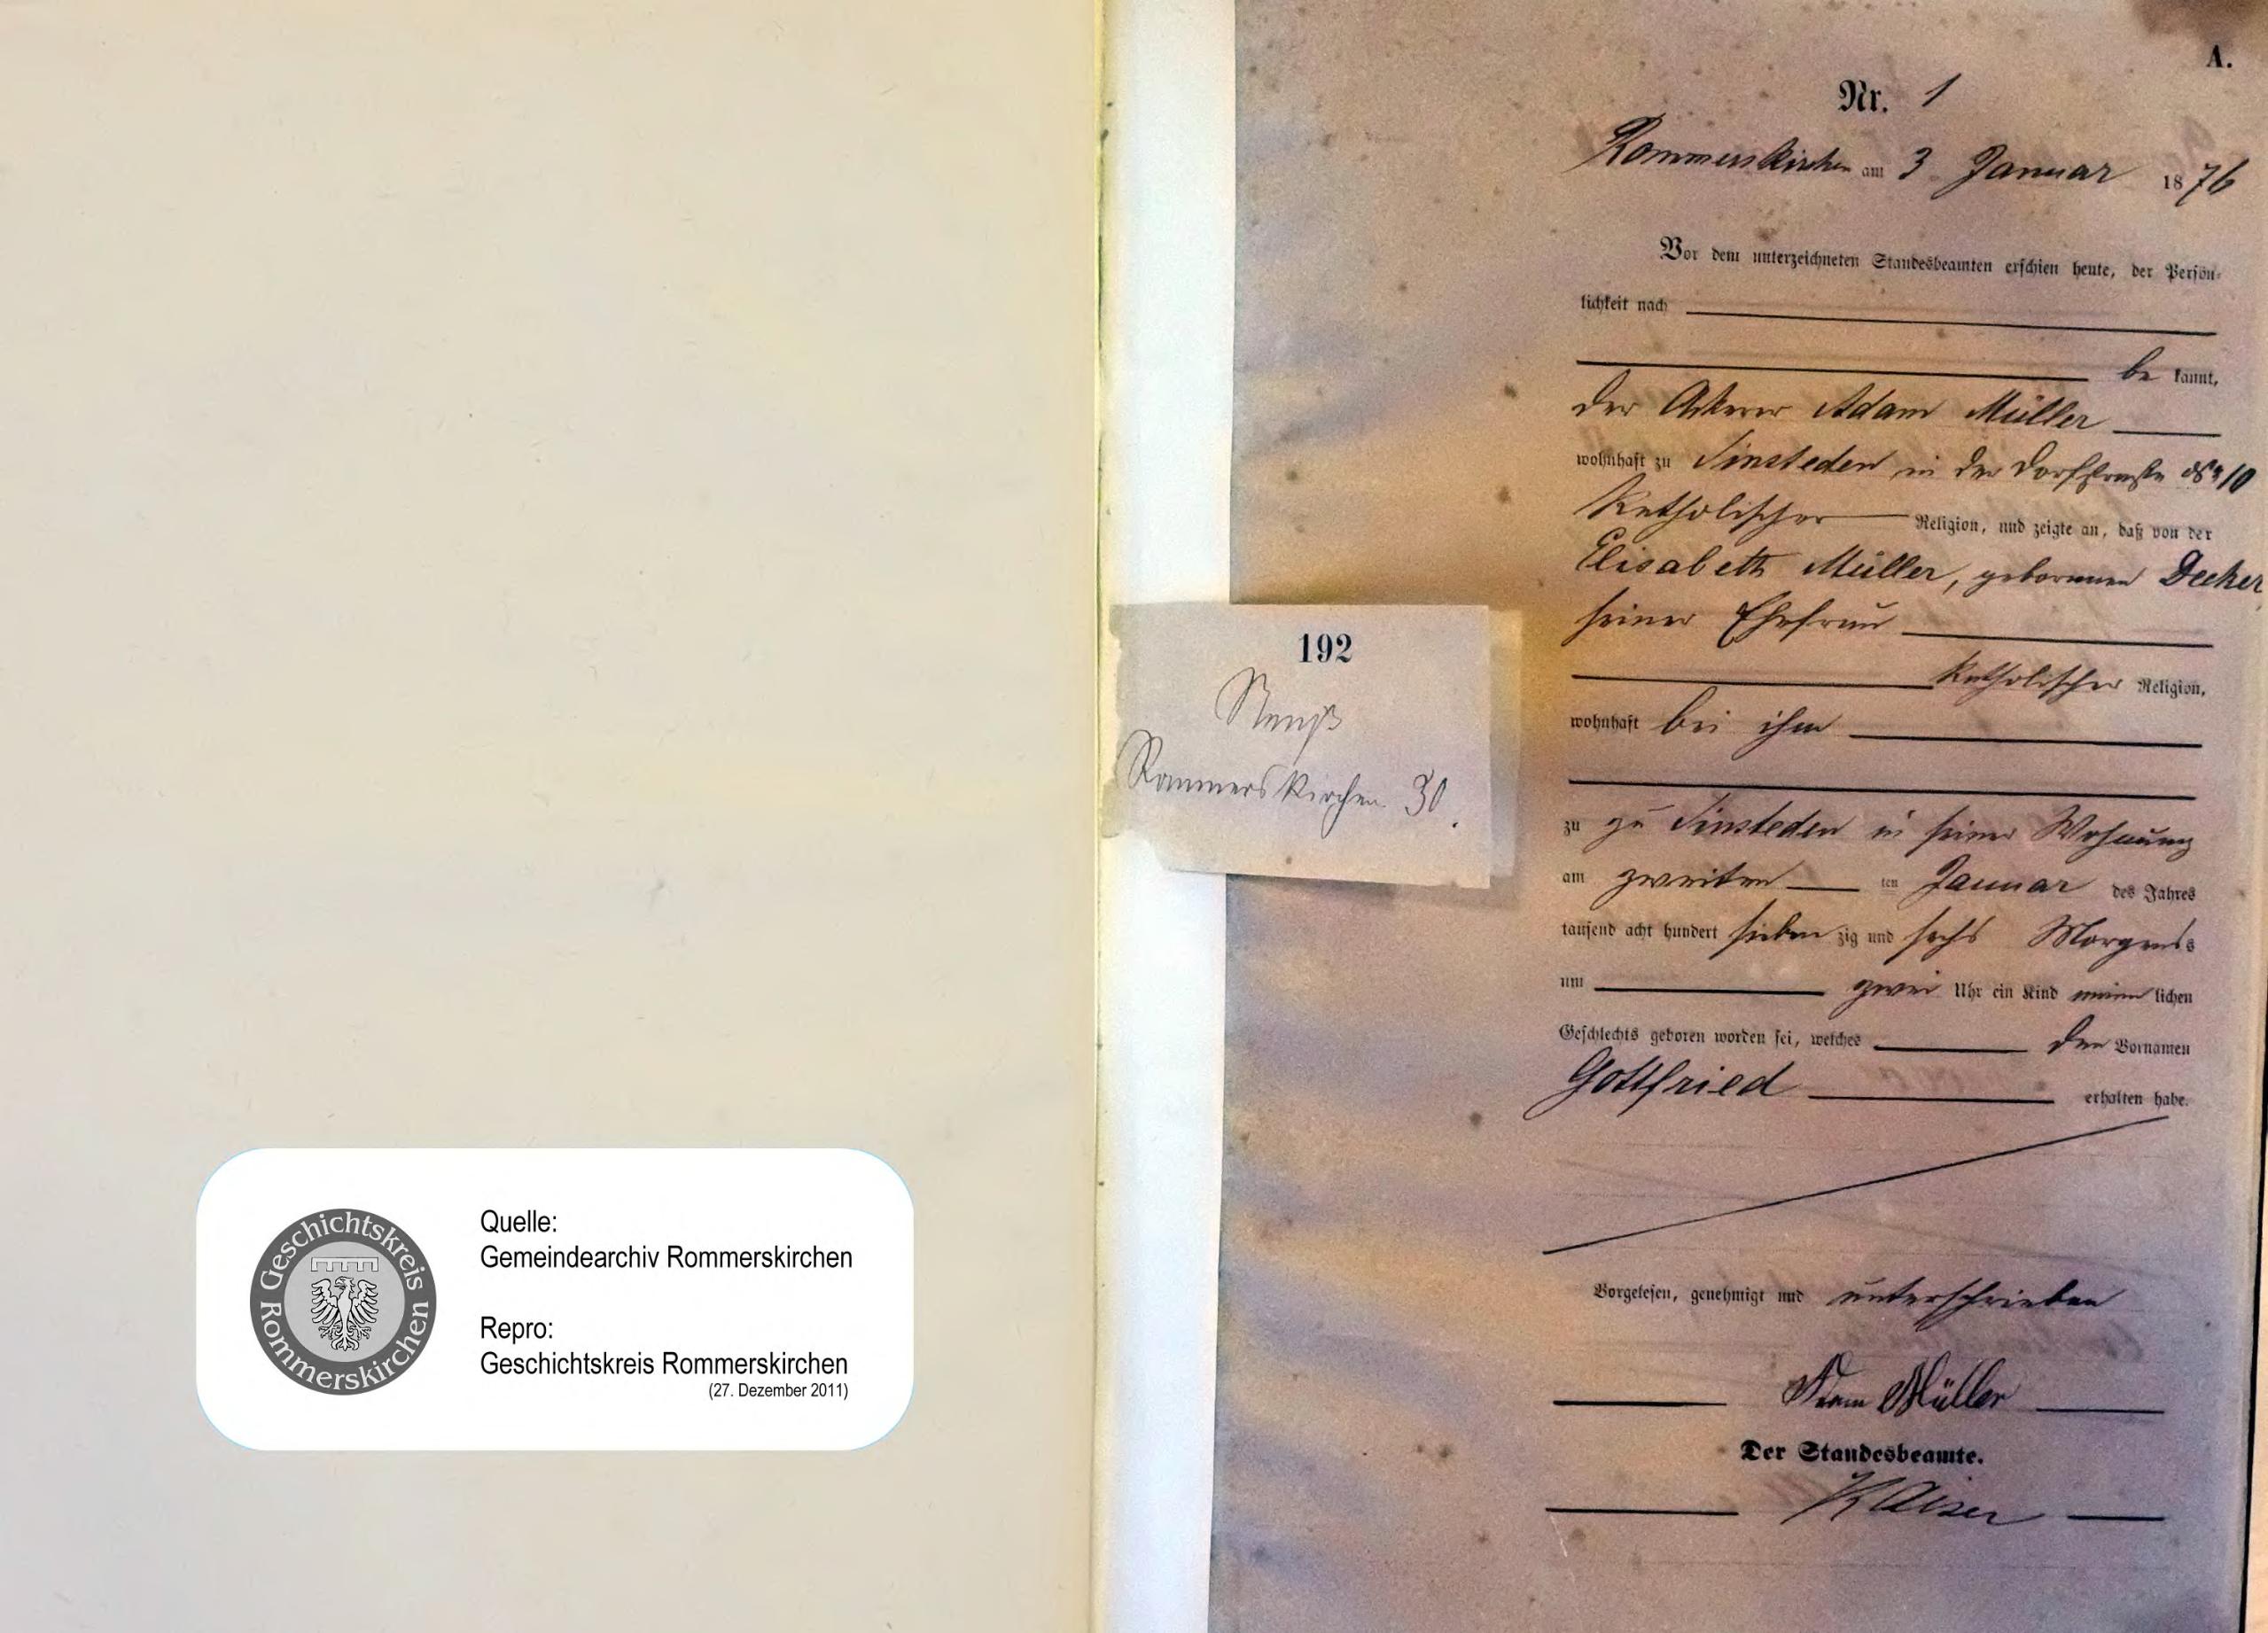 Geschichtskreis Rommerskirchen
Quelle:
Gemeindearchiv Rommerskirchen
Repro:
Geschichtskreis Rommerskirchen
(27. Dezember 2011)
192
Neuß
Rommerskirchen 30.
A.
Nr. 1
Rommerskirchen am 3 Januar 1876
Vor dem unterzeichneten Standesbeamten erschien heute, der Persön-
lichkeit nach
be kannt,
der Ackerer Adam Müller
wohnhaft zu Sinsteden in der Dorfstraße No 10
katholischer Religion, und zeigte an, daß von der
Elisabeth Müller, geborenen Decker,
seiner Ehefrau
katholischer Religion,
wohnhaft bei ihm
zu zu Sinsteden in seiner Wohnung
am zweiten ten Januar des Jahres
tausend acht hundert sieben zig und sechs Morgens
um zwei Uhr ein Kind männ lichen
Geschlechts geboren worden sei, welches den Vornamen
Gottfried erhalten habe.
Vorgelesen, genehmigt und unterschrieben
Adam Müller
Der Standesbeamte.
Kaiser